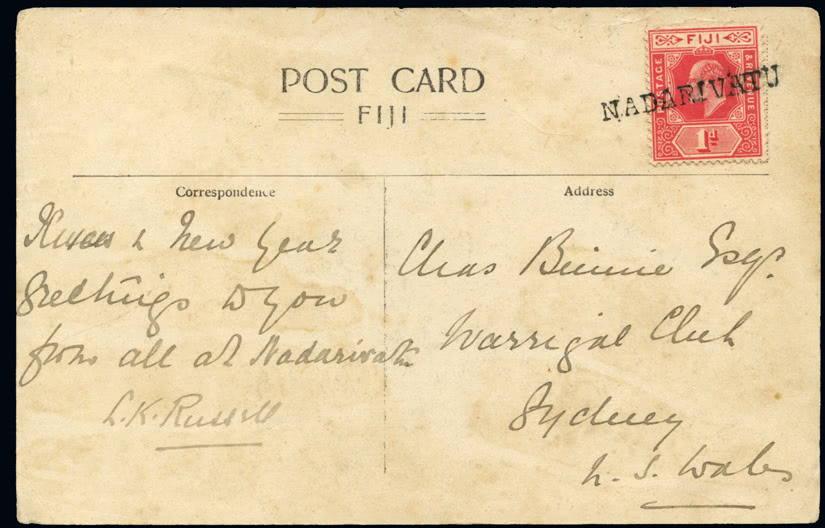 POST CARD
FIJI
FIJI
POSTAGE
& REVENUE
1d
NADARIVATU
Correspondence
Address
Xmas & New Year
Greetings to you
from all at Nadarivatu
L.K. Russell
Chas Binnie Esqr.
Warrigal Club
Sydney
N. S. Wales